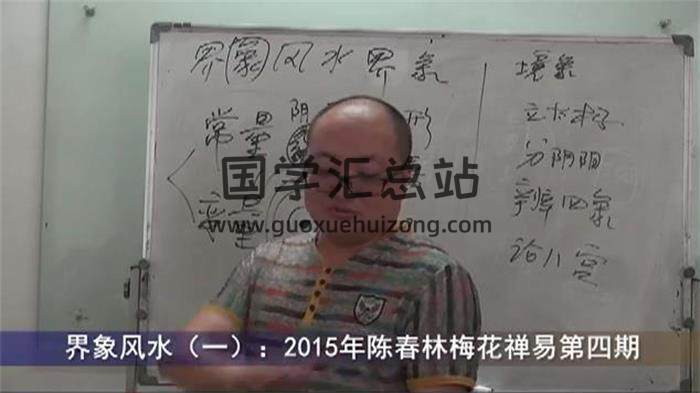 界象风水界氣
境象
常量
阴
形
立太极
分阴阳
变量
辨四氣
论八宫
国学汇总站
www.guoxuehuizong.com
界象风水（一）：2015年陈春林梅花禅易第四期